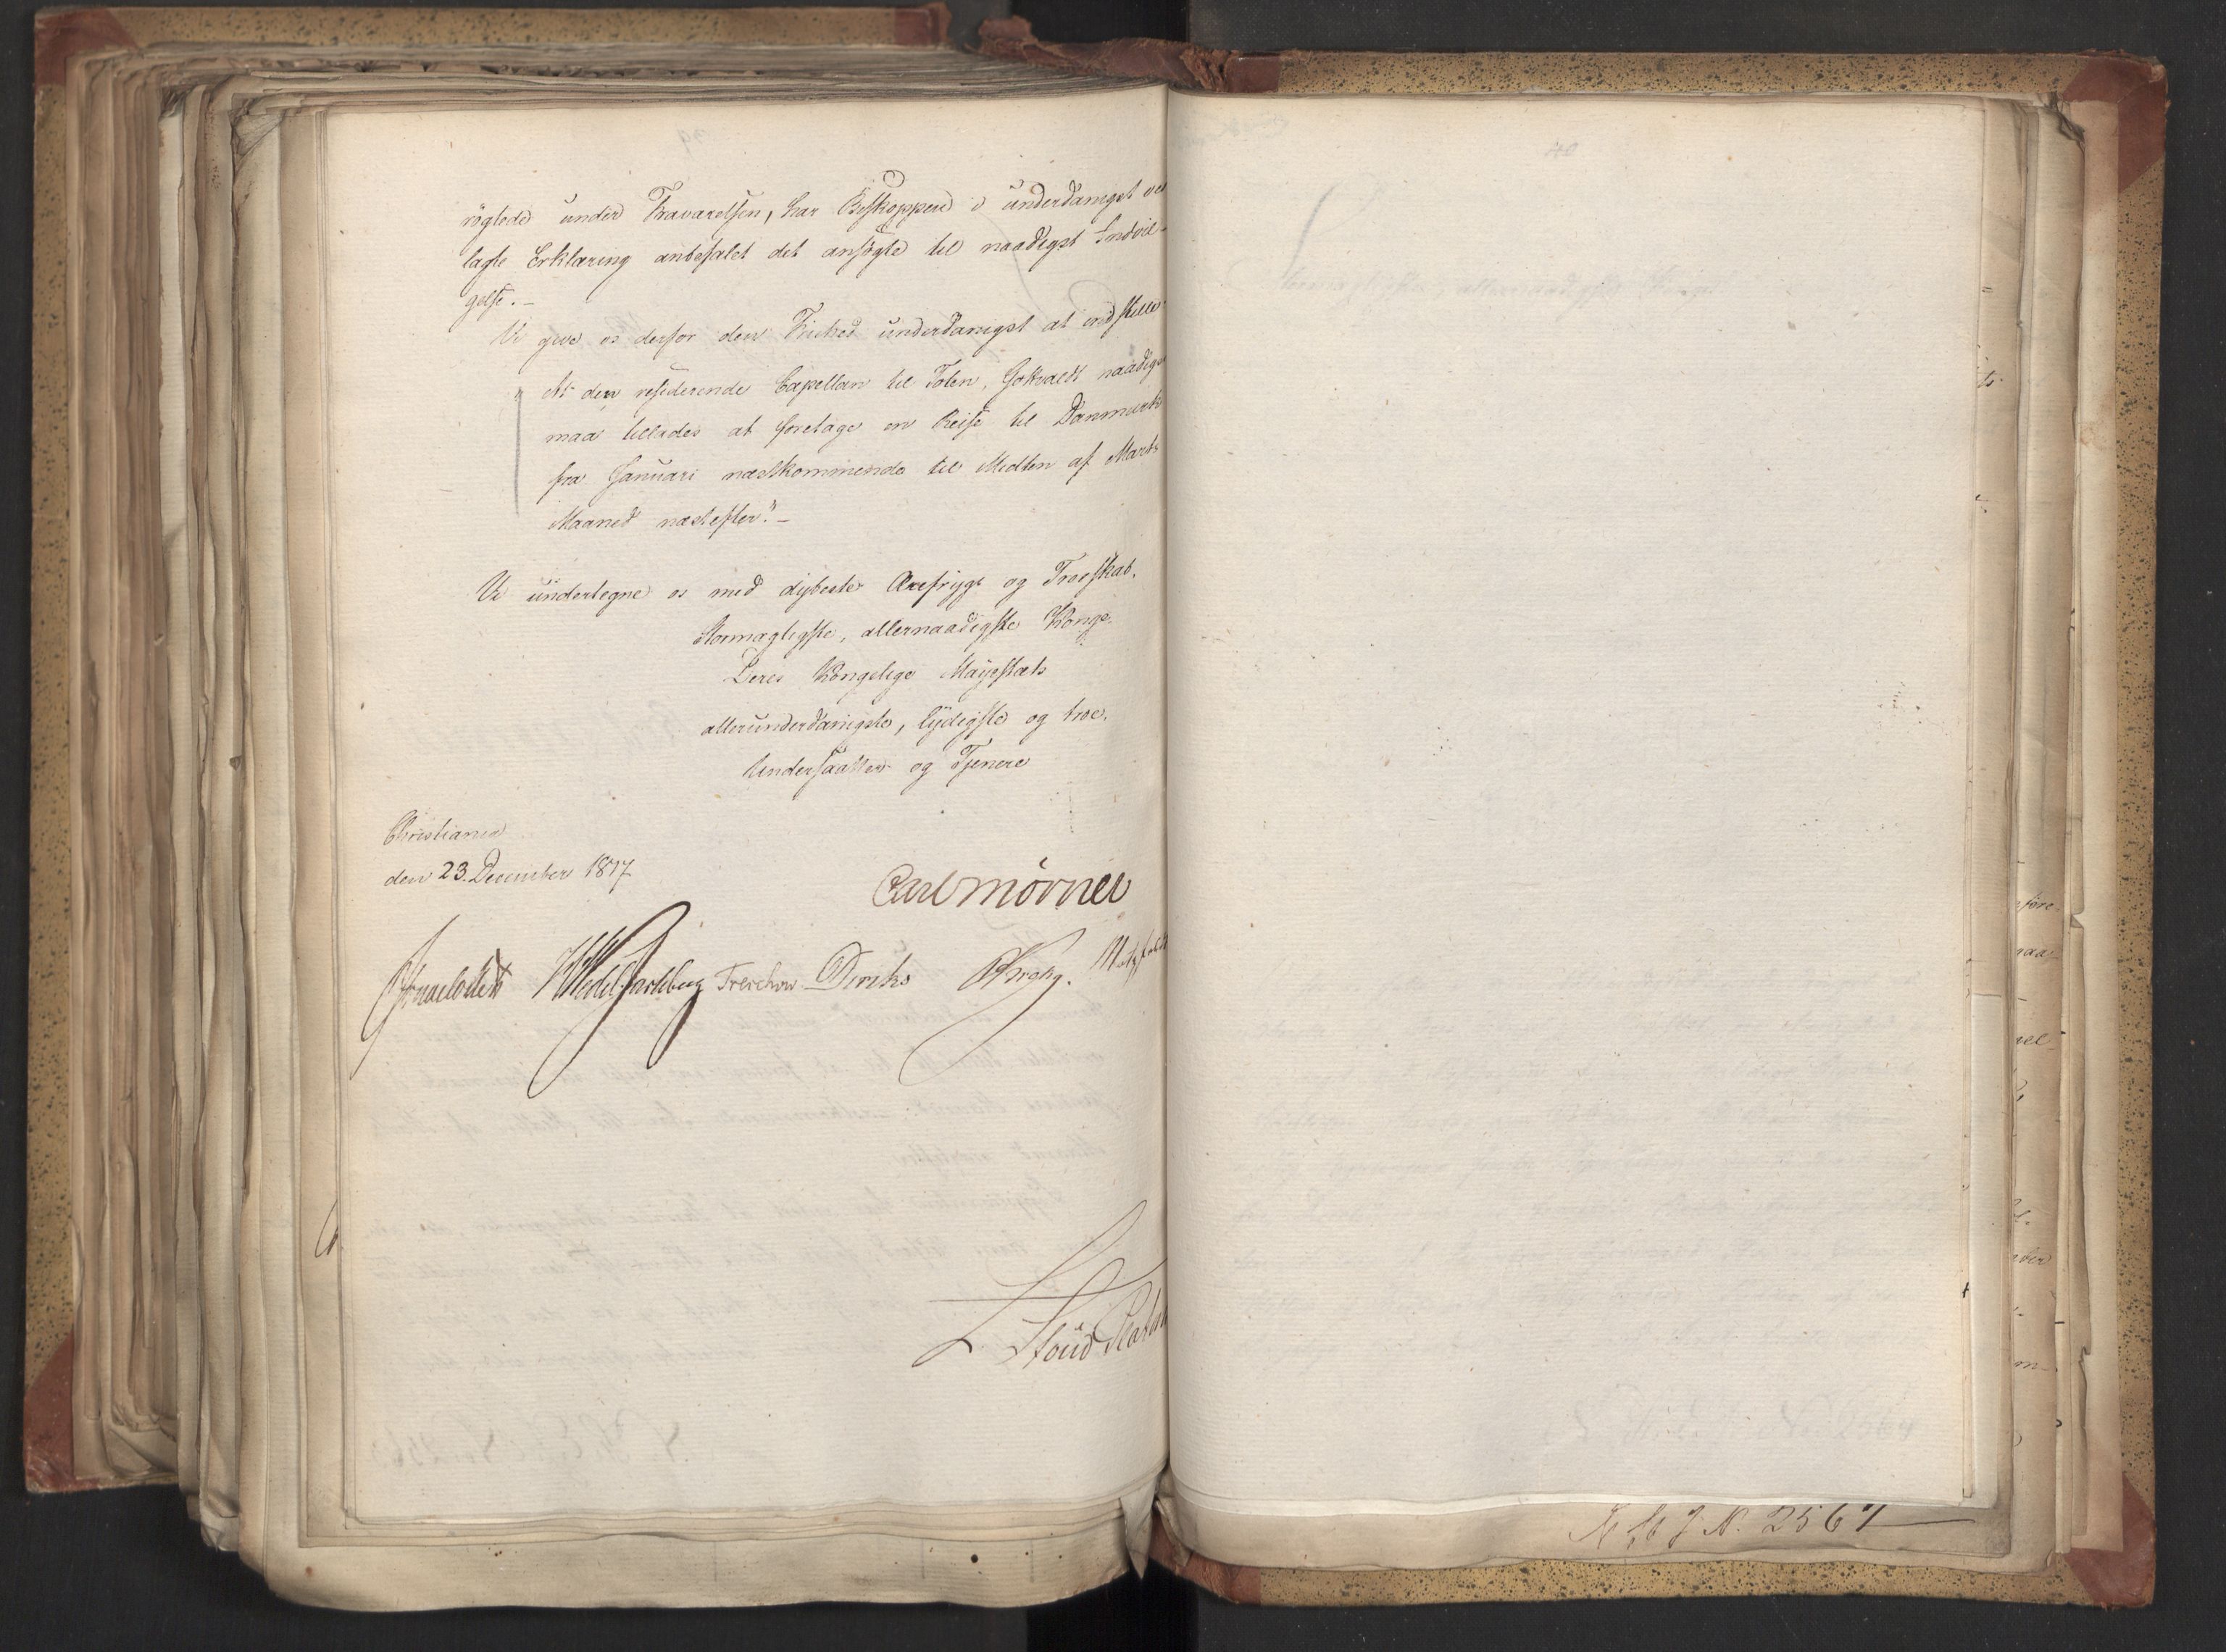 rögtede under Fraværelsen, har Biskoppen i underdanigst ved
lagte Erklæring anbefalet det ansögte til naadigst Indvil-
gelse. –
Vi give os derfor den Friehed underdanigst at indstille:
"At den residerende Capellan til Toten, Gotvaldt naadigst
maa tillades at foretage en Reise til Danmark
fra Januari næstkommende til Medten af Marts
Maaned næstefter." –
Vi undertegne os med dybeste Ærefrygt og Troeskab.
Stormægtigste, allernaadigste Konge.
Deres Kongelige Majestæts
allerunderdanigste, lydigste og troe
Undersaatter og Tjenere
Christiania
den 23. December 1817
Carl Mörner
Wedel Jarlsberg Treschow Diriks Krohg. Motzfeldt
L. Stoud Platou
No. 2567